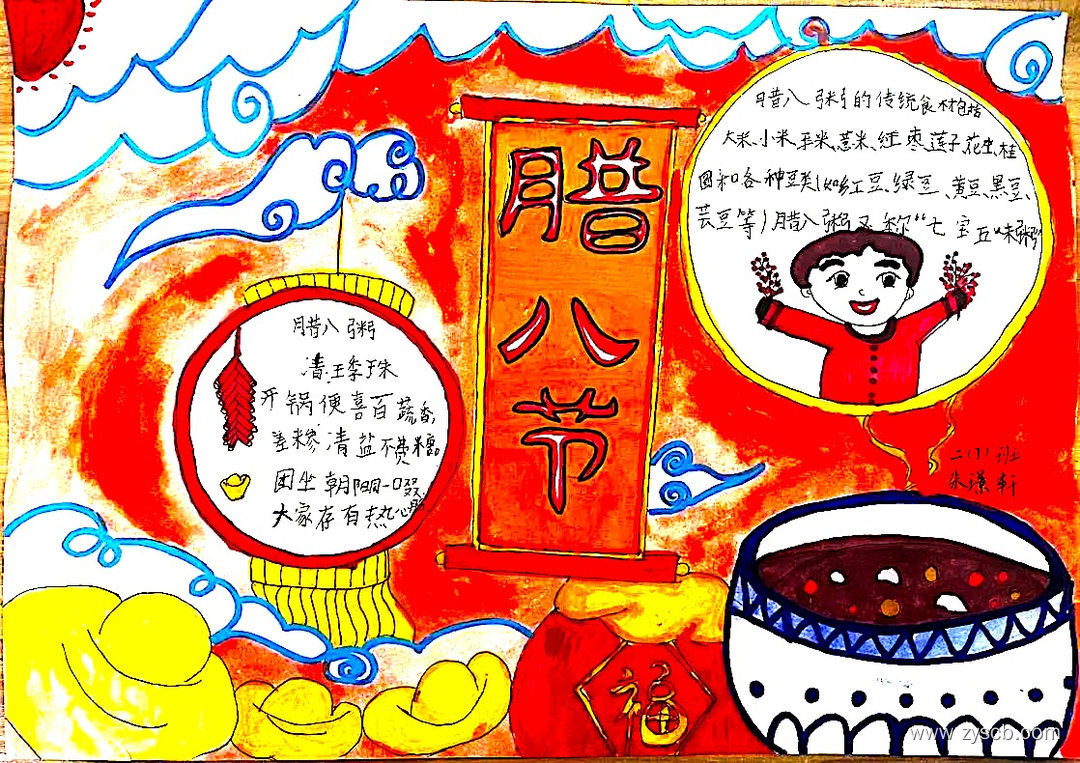 腊八节
腊八粥
清 王季珠
开锅便喜百蔬香,
差糁清盐不费糖
团坐朝阳同一啜,
大家存有热心肠
腊八粥的传统食材包括
大米、小米、玉米、薏米、红枣、莲子、花生、桂
圆和各种豆类(如红豆、绿豆、黄豆、黑豆、
芸豆等)腊八粥又称“七宝五味粥”
二(1)班
朱璟轩
福
www.zyscb.com